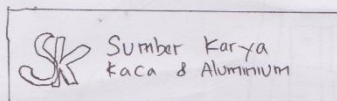 SK
Sumber Karya
Kaca & Aluminium